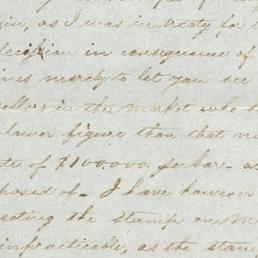 as I was entirely for
decision in consequence of
merely to let you see
sellers in the market who
lower figure than that
of $100000 per bar - as
posed of. I have however
the stamp on
impracticable, as the stam